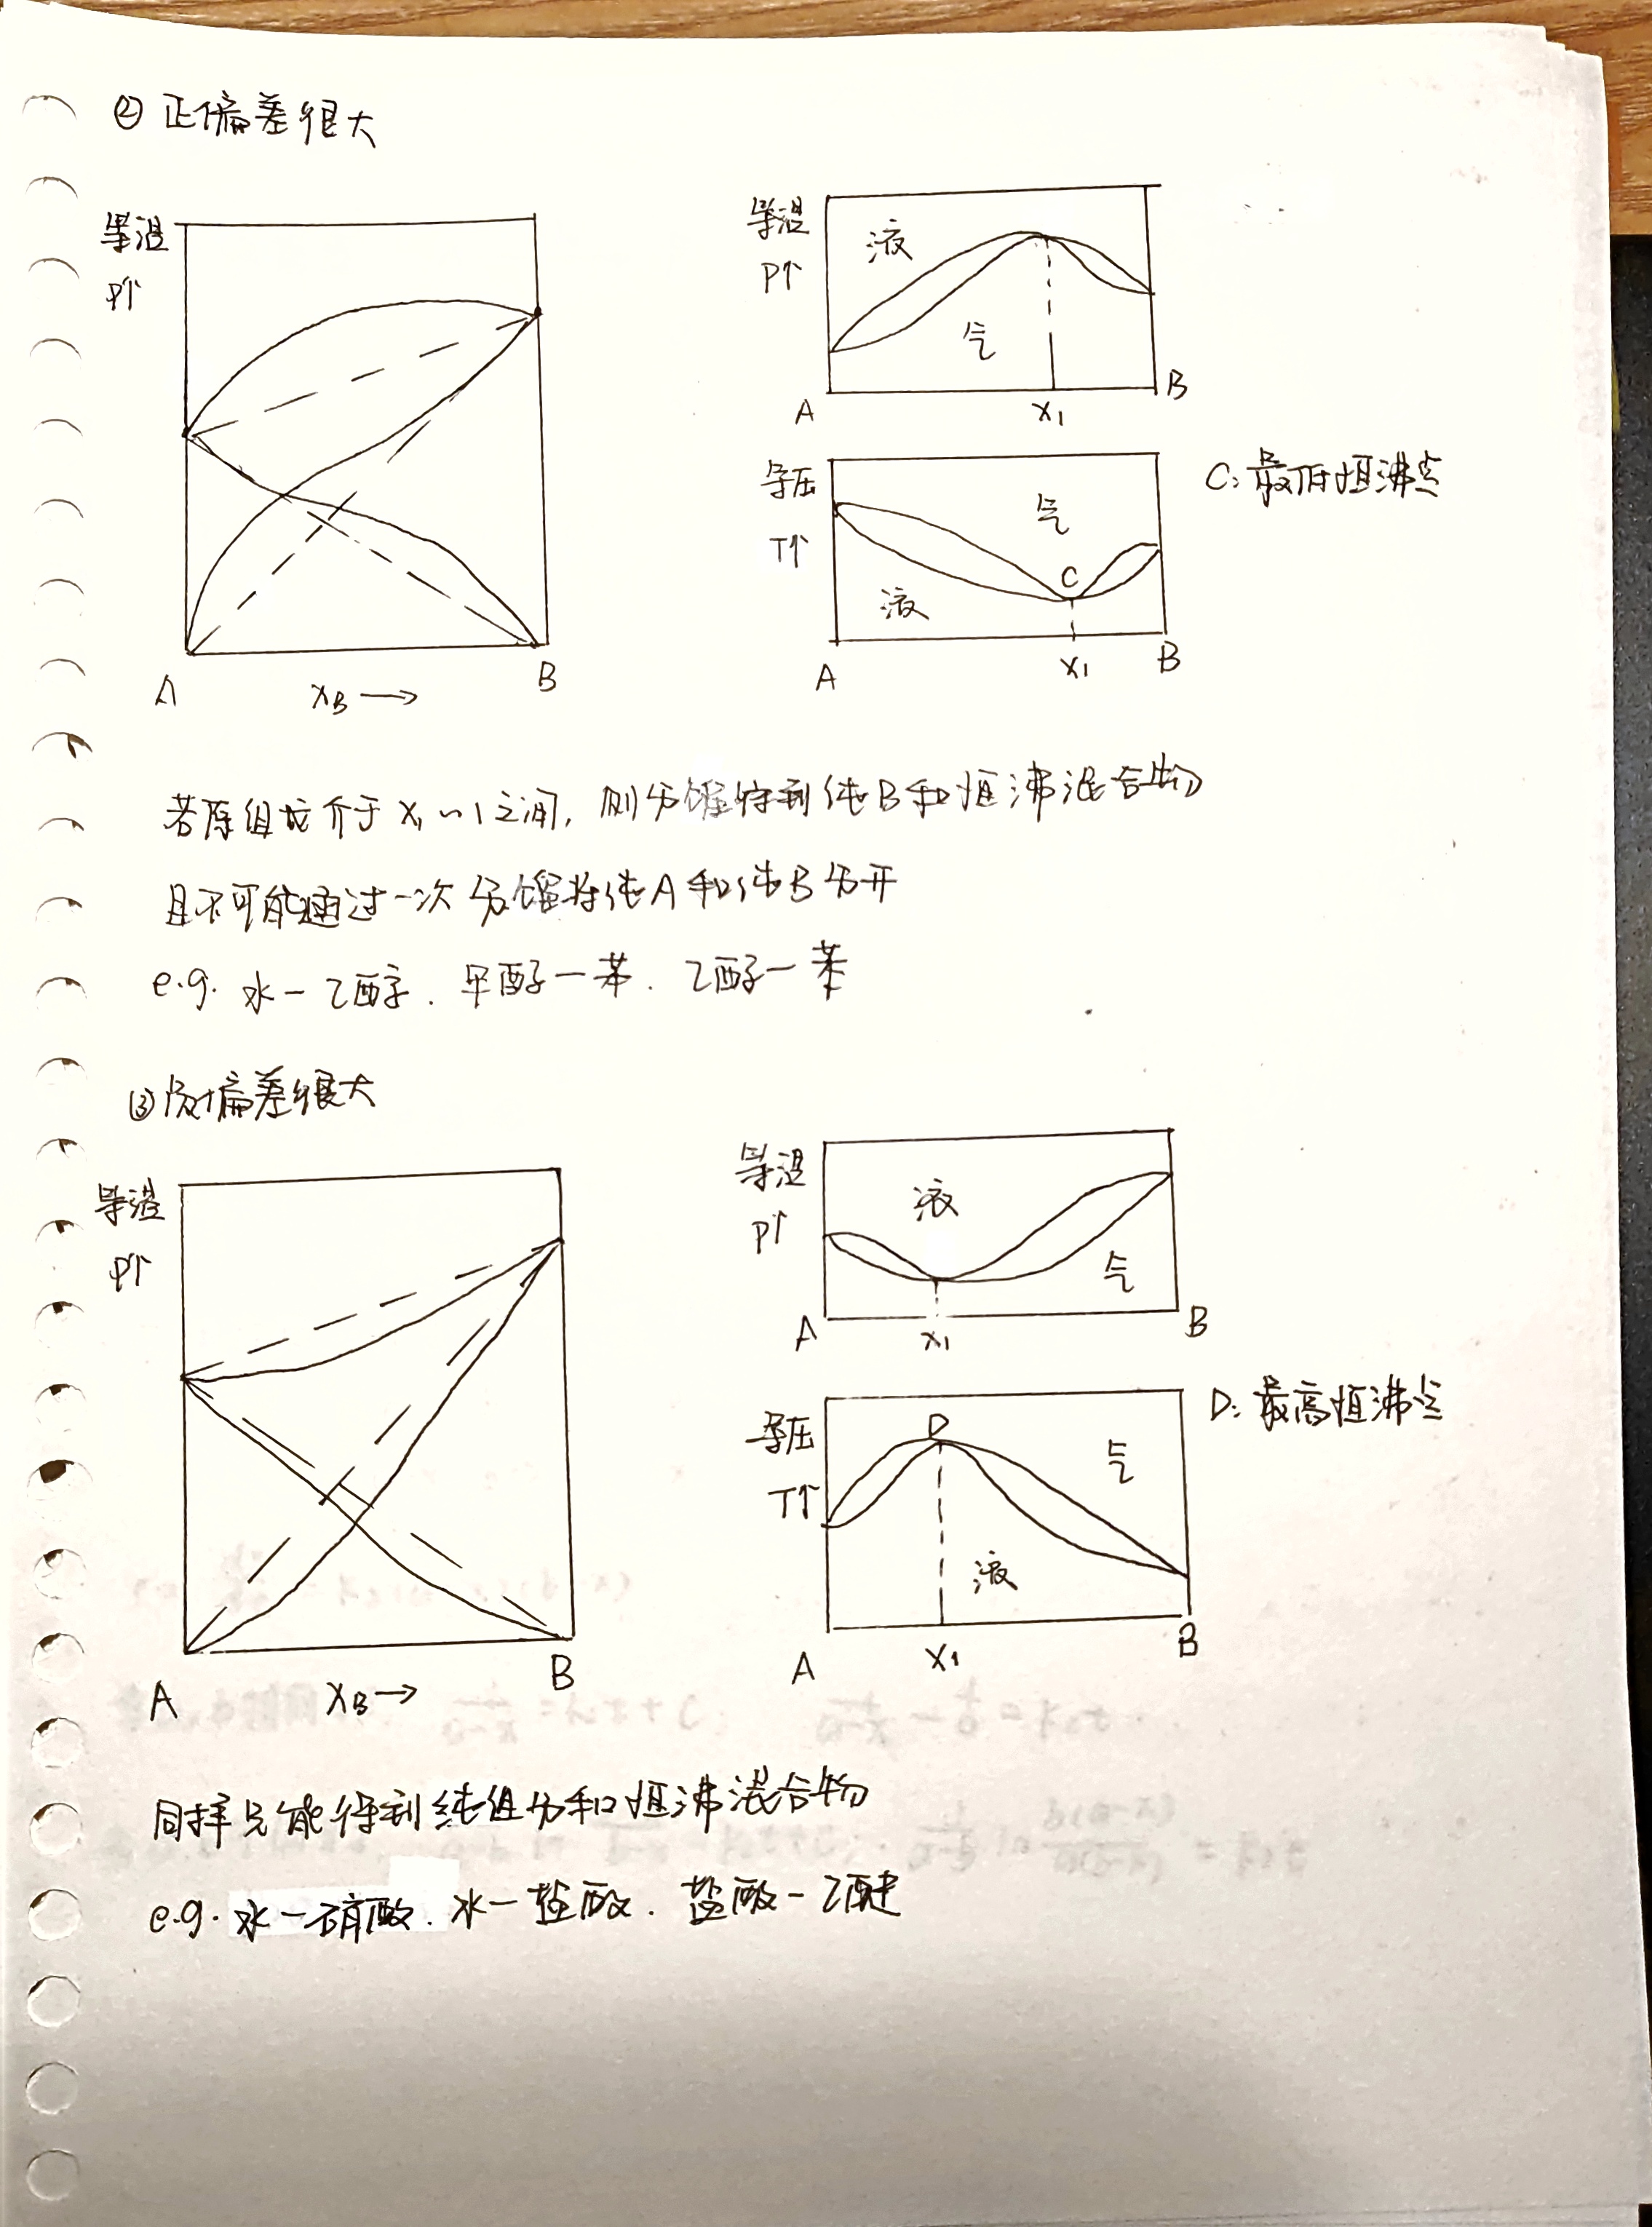 ② 正偏差很大
等温
P↑
A
xB→
B
等温
P↑
液
气
A
x1
B
等压
T↑
气
C
液
A
x1
B
C: 最低恒沸点
若原组成介于 x1~1之间, 则分馏得到纯B和恒沸混合物
且不可能通过一次分馏将纯A和纯B分开
e.g. 水-乙醇. 甲醇-苯. 乙醇-苯
③ 负偏差很大
等温
P↑
A
xB→
B
等温
P↑
液
气
A
x1
B
等压
T↑
D
气
液
A
x1
B
D: 最高恒沸点
同样只能得到纯组分和恒沸混合物
e.g. 水-硝酸. 水-盐酸. 盐酸-乙醚